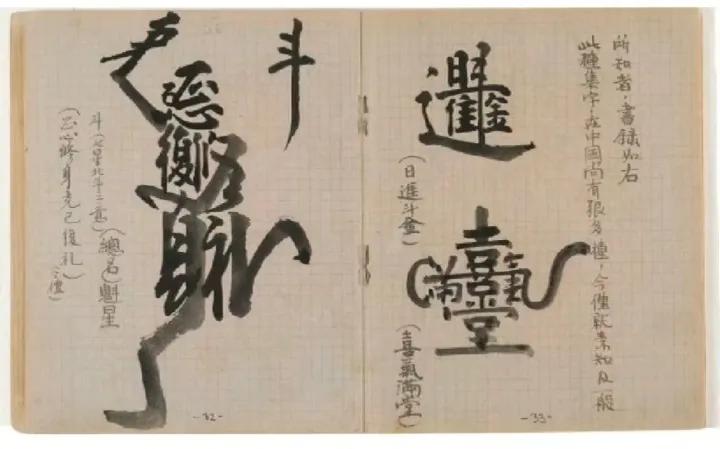 斗
斗（七星北斗之意）
（總名）魁星
（正心修身克己復礼）
-32-
此種集字，在中國尚有很多種，今僅就素知及一般
所知者，書錄如右
（日進斗金）
喜氣滿堂
（喜氣滿堂）
-33-